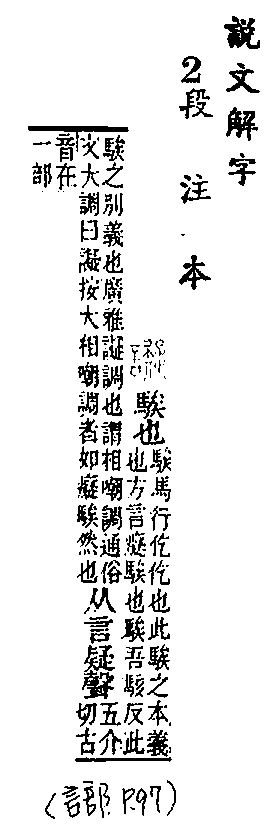 説文解字
2段注本
騃也
騃馬行仡仡也此騃之本義
也方言癡騃也騃吾駭反此
騃之別義也廣雅譺調也謂相嘲調通俗
文大調曰譺按大相嘲調者如癡騃然也
从言疑聲
五介
切古
音在
一部
(言部 P.97)